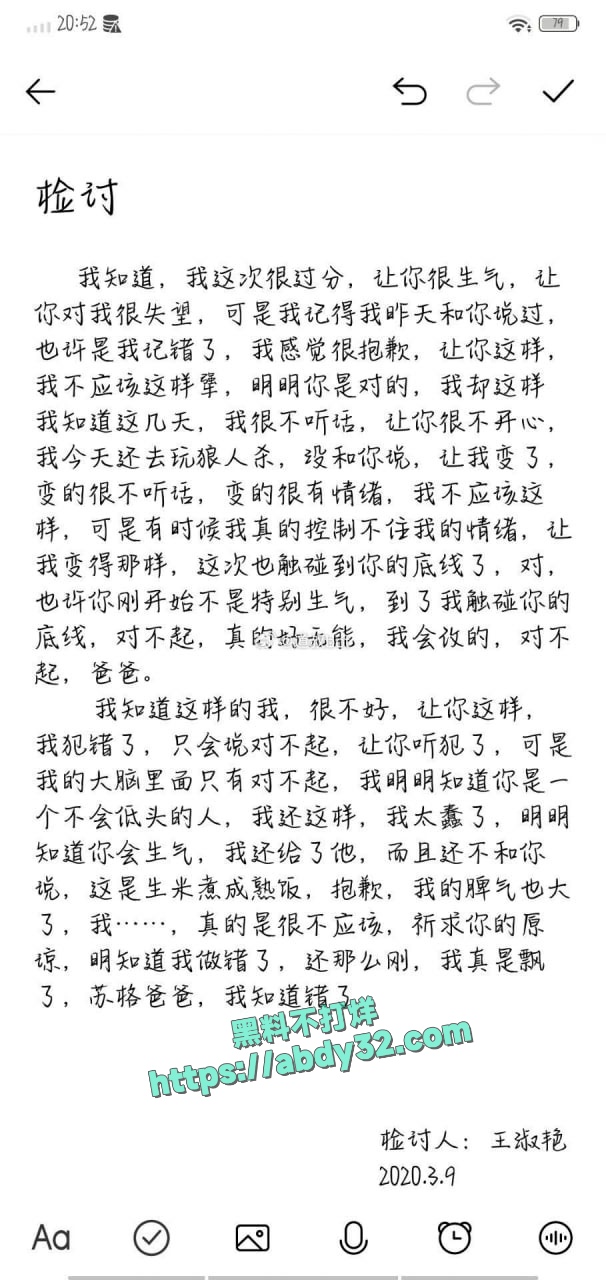 20:52
79
检讨
我知道，我这次很过分，让你很生气，让
你对我很失望，可是我记得我昨天和你说过，
也许是我记错了，我感觉很抱歉，让你这样，
我不应该这样犟，明明你是对的，我却这样
我知道这几天，我很不听话，让你很不开心，
我今天还去玩狼人杀，没和你说，让我变了，
变的很不听话，变的很有情绪，我不应该这
样，可是有时候我真的控制不住我的情绪，让
我变得那样，这次也触碰到你的底线了，对，
也许你刚开始不是特别生气，到了我触碰你的
底线，对不起，真的好无能，我会改的，对不
起，爸爸。
我知道这样的我，很不好，让你这样，
我犯错了，只会说对不起，让你听犯了，可是
我的大脑里面只有对不起，我明明知道你是一
个不会低头的人，我还这样，我太蠢了，明明
知道你会生气，我还给了他，而且还不和你
说，这是生米煮成熟饭，抱歉，我的脾气也大
了，我……，真的是很不应该，祈求你的原
谅，明知道我做错了，还那么刚，我真是飘
了，苏格爸爸，我知道错了
黑料不打烊
https://abdy32.com
检讨人：王淑艳
2020.3.9
Aa